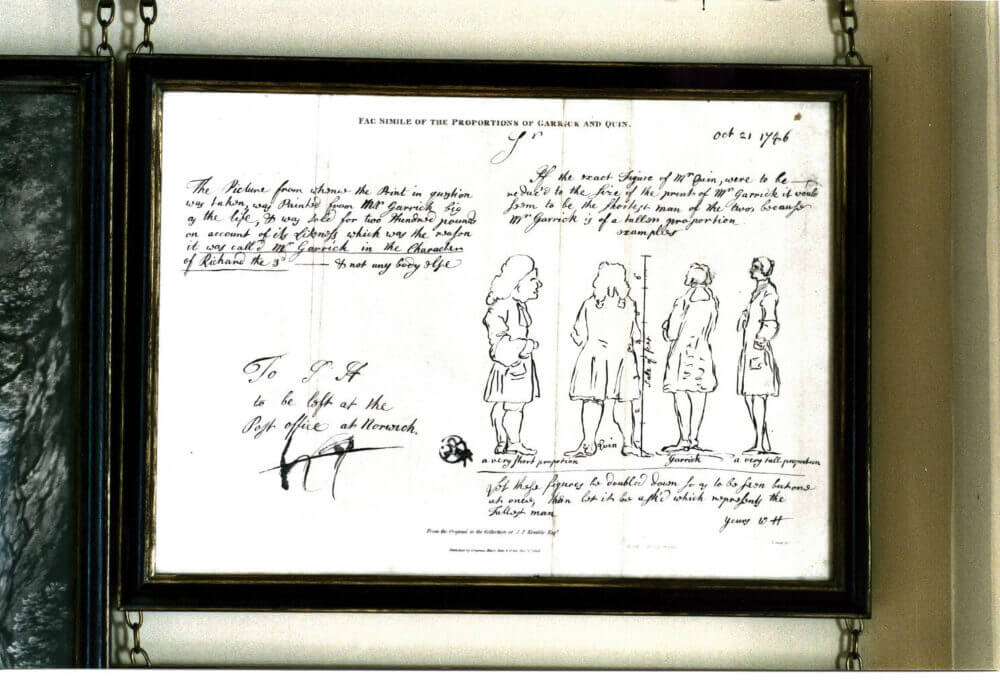 FAC SIMILE OF THE PROPORTIONS OF GARRICK AND QUIN.
Oct 21 1746
Sr
If the exact Figure of Mr Quin, were to be
reduc'd to the size of the print of Mr Garrick it would
seem to be the shortest man of the two, because
Mr Garrick is of a taller proportion
examples
The Picture from whence the Print in question
was taken, was Painted from Mr Garrick big
as the life, & was sold for two Hundred pounds
on account of its Likeness which was the reason
it was call'd Mr Garrick in the Character
of Richard the 3d & not any body else
To S H
to be left at the
Post office at Norwich.
Scale of
Quin
a very short proportion
Garrick
a very tall proportion
Let these figures be doubled down so as to be seen but one
at once, then let it be ask'd which represents the
tallest man
Yours W H
From the Original in the Collection of J. P. Kemble Esqr.